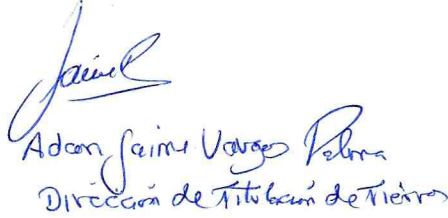 Jaime
Adan Jaime Vargas Palma
Dirección de Titulación de Tierras